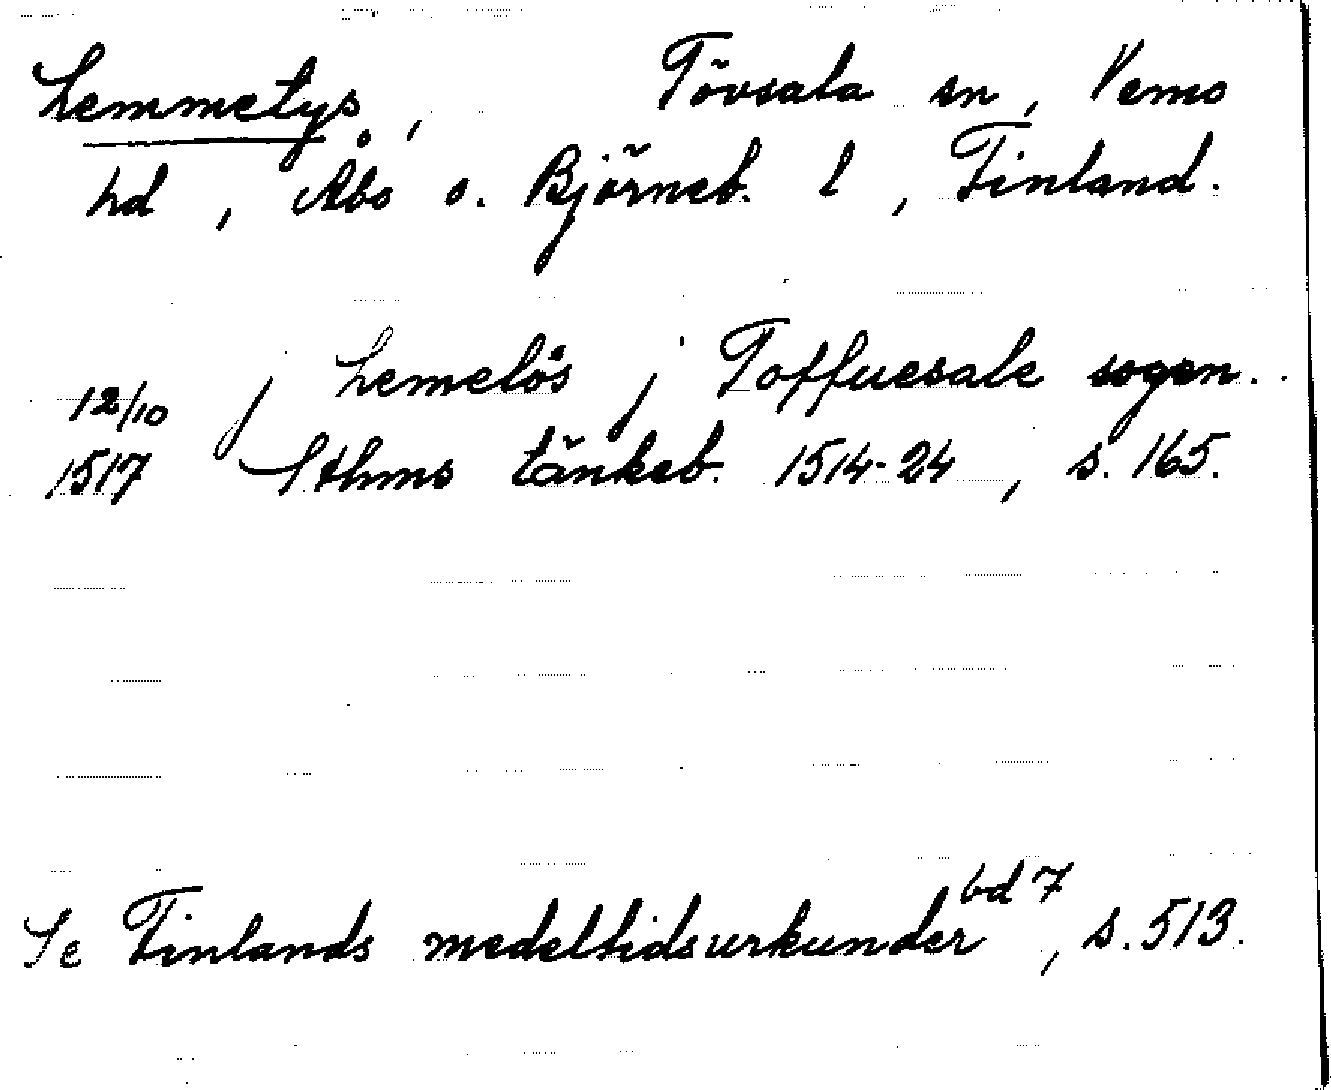 Lemmetys, Tövsala sn, Vemo
hd, Åbo o. Björneb. l, Finland.
12/10 j Lemelös j Toffuesale sogen..
1517 Sthms tänkeb. 1514-24, s. 165.
Se Finlands medeltidsurkunder bd 7, s. 513.